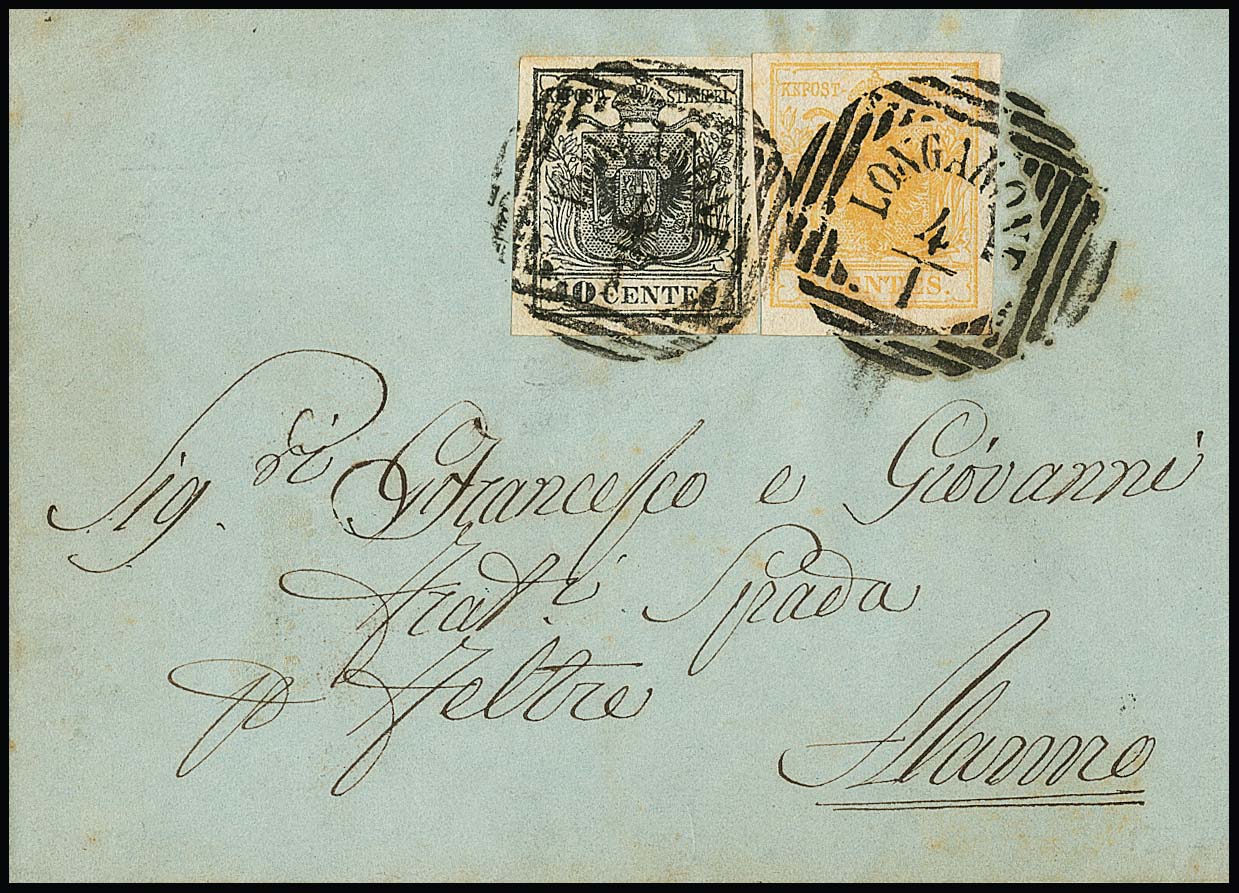 KKPOST-STEMPEL
10 CENTES.
KKPOST-
CENTES.
LONGARONE
4
1
Sig.ri Francesco e Giovanni
Frat.i Spada
p Feltre